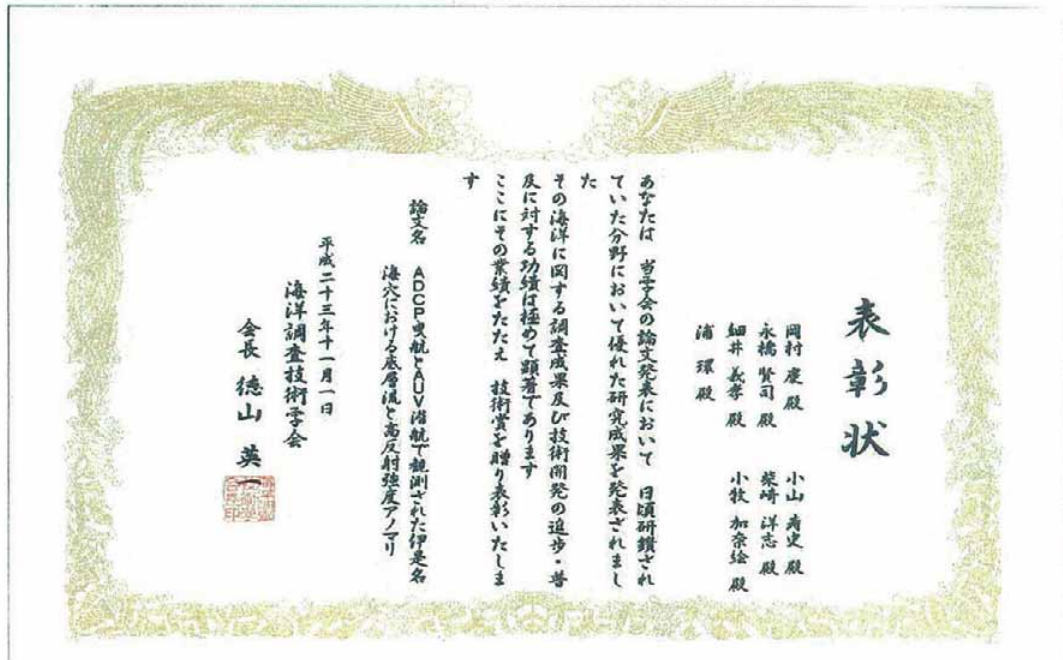 表彰状
岡村 慶殿 小山 寿史殿
永橋 賢司殿 柴崎 洋志殿
細井 義孝殿 小牧 加奈絵殿
浦 環殿
あなたは 当学会の論文発表において 日頃研鑽され
ていた分野において優れた研究成果を発表されまし
た
その海洋に関する調査成果及び技術開発の進歩・普
及に対する功績は極めて顕著であります
ここにその業績をたたえ 技術賞を贈り表彰いたしま
す
論文名 ADCP曳航とAUV潜航で観測された伊是名
海穴における底層流と高反射強度アノマリ
平成二十三年十一月一日
海洋調査技術学会
会長 徳山 英一